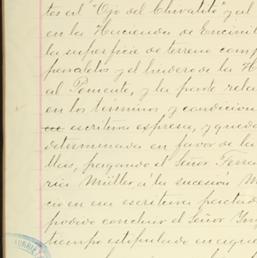 tos al "Ojo del Chivatito" y al
en la Hacienda de Encinil
la superficie de terreno comp
paralelos y el lindero de la H
al Poniente, y la parte rela
en los términos y condicion
escritura expresa, y qued
determinada en favor de la
llas, pagando el Señor Ferra
Müller á la sucesión M
cio en esa escritura pactad
podido concluir el Señor Ing
tiempo estipulado en aque